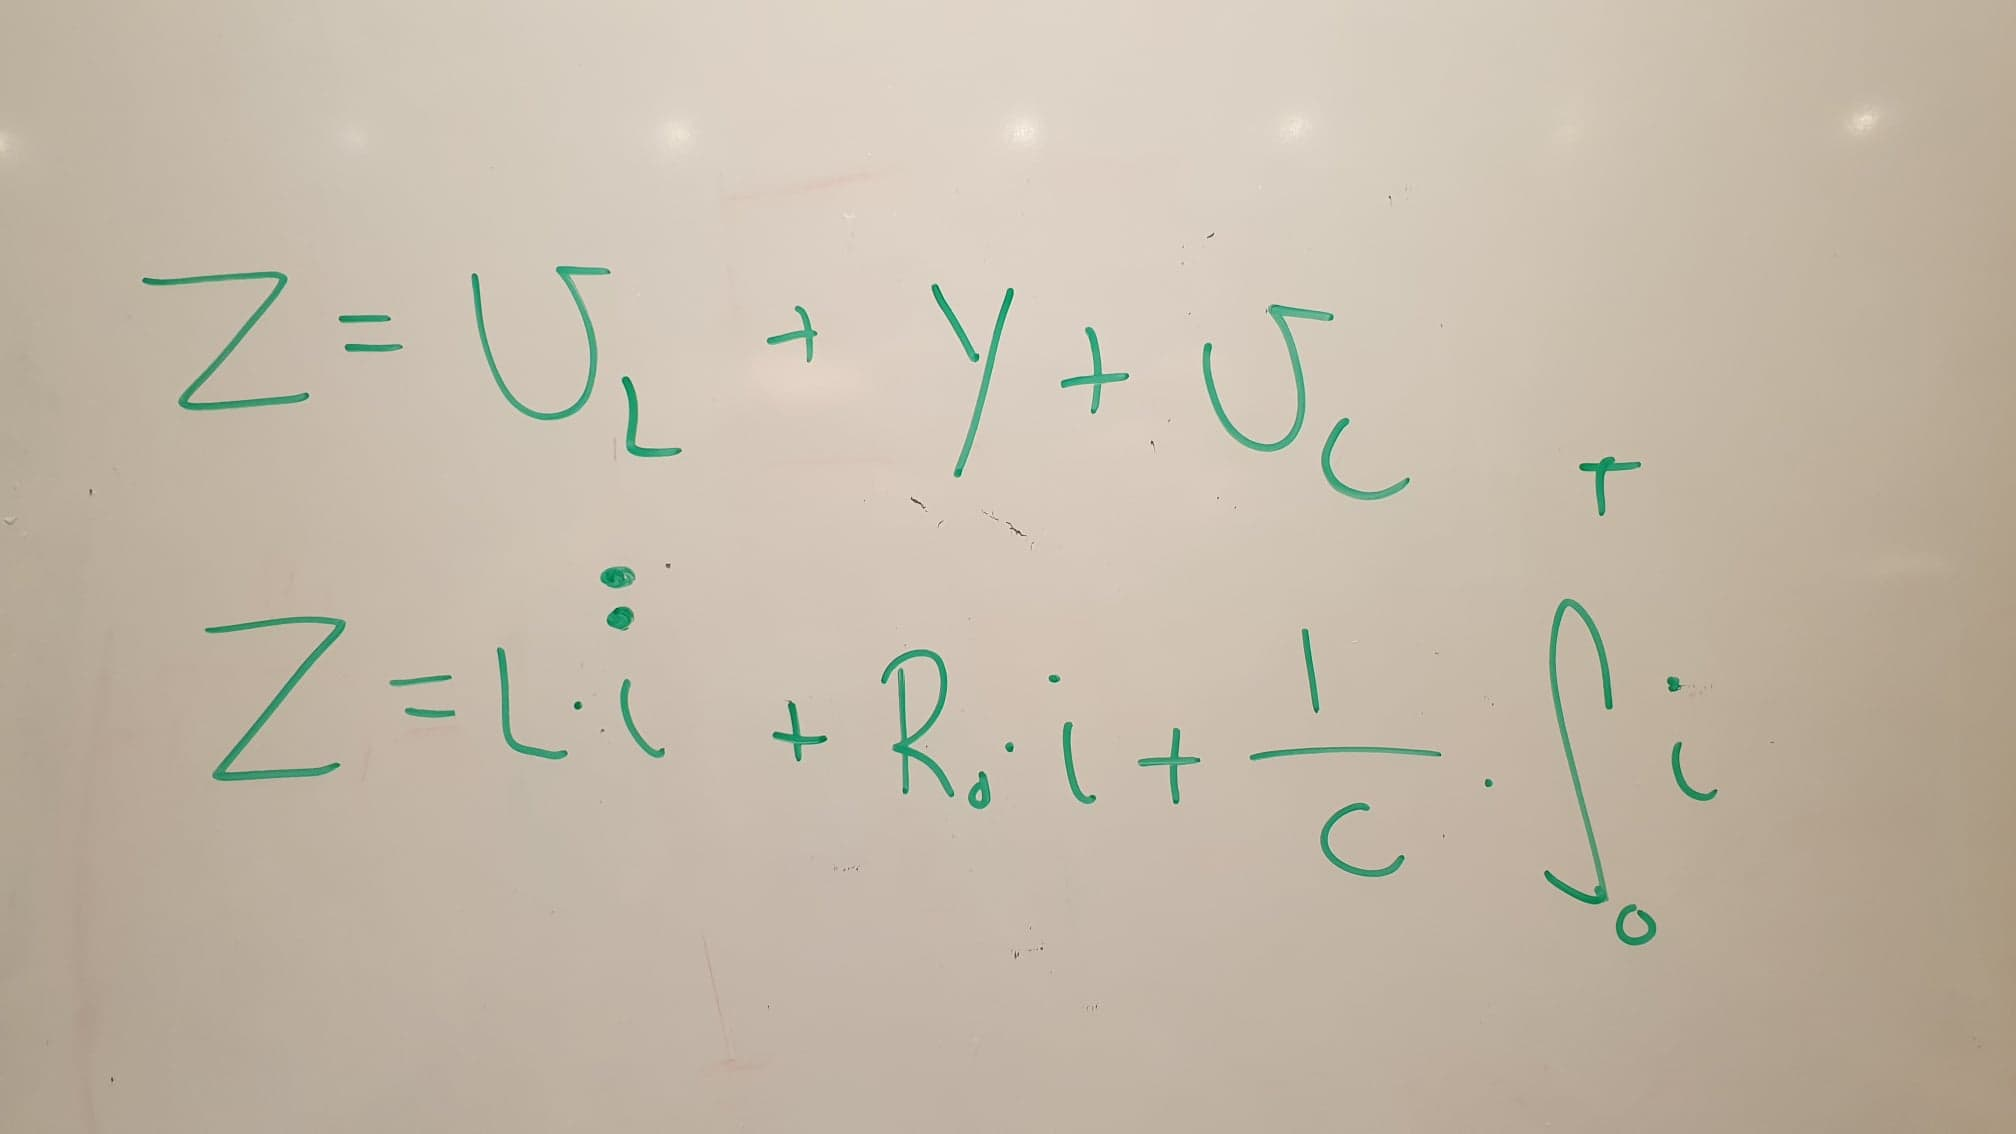 Z = U_L + y + U_C
Z = L · i̇ + R₀ · i + 1/C · ∫₀ᵀ i